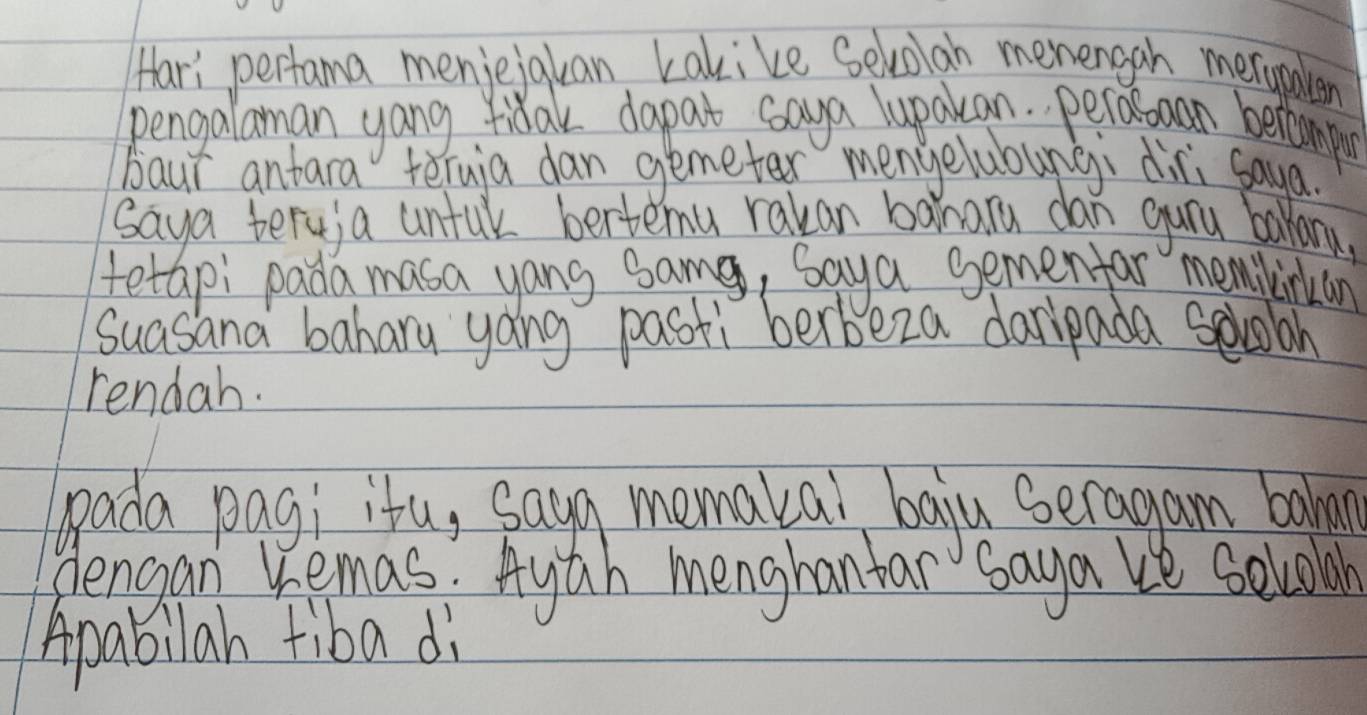 Hari pertama menjejakan kaki ke Sekolah menengah merupakan
pengalaman yang tidak dapat saya lupakan.. perasaan bercampur
baur antara teruja dan gemeter menyelubungi diri saya.
Saya teruja untuk bertemu rakan baharu dan guru baharu,
tetapi pada masa yang sama, Saya gementar memikirkan
Suasana baharu yang pasti berbeza daripada Sekolah
rendah.
pada pagi itu, saya memakai baju Seragam baharu
dengan kemas. Ayah menghantar saya ke Sekolah
Apabilah tiba di